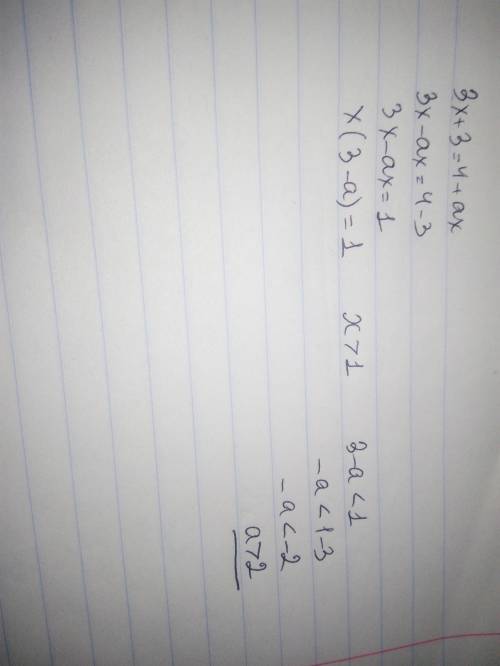 3x+3=4+ax
3x-ax=4-3
3x-ax=1
x(3-a)=1 x>1 3-a<1
-a<1-3
-a<-2
a>2